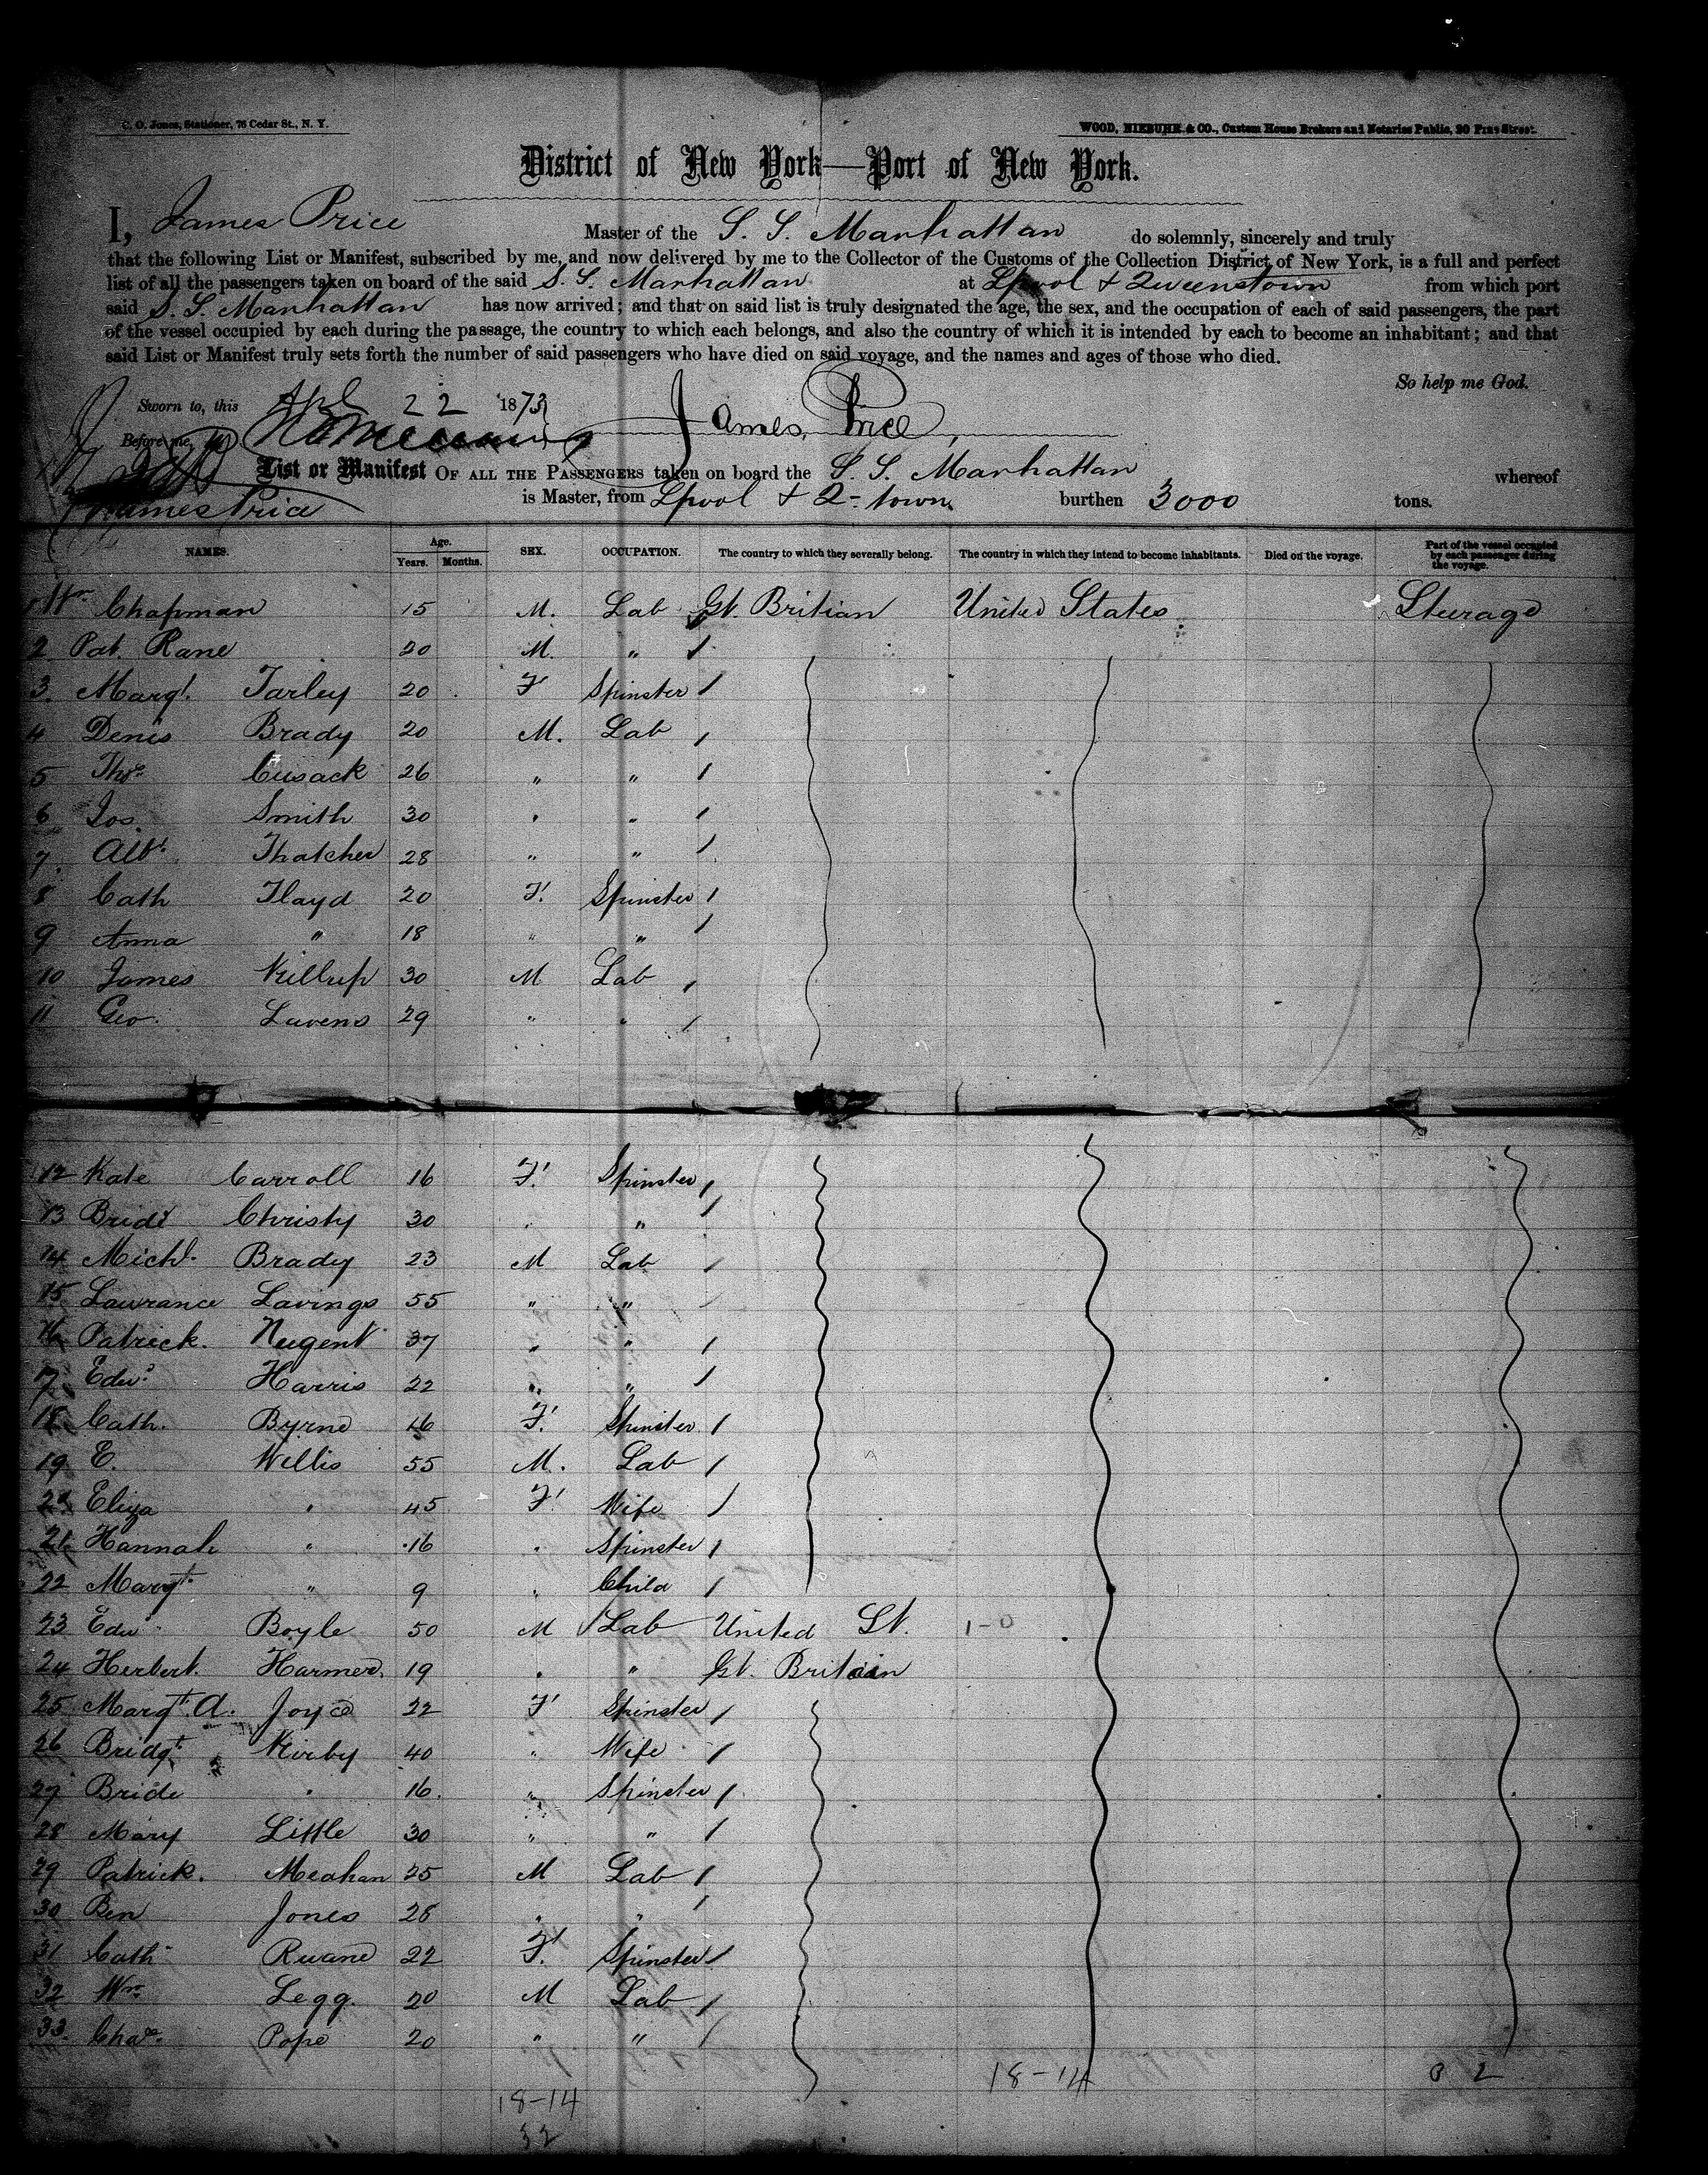 C. O. Jones, Stationer, 76 Cedar St., N. Y.
WOOD, NIEBUHR & CO., Custom House Brokers and Notaries Public, 30 Pine Street.
District of New York—Port of New York.
I, James Price Master of the S. S. Manhattan do solemnly, sincerely and truly
that the following List or Manifest, subscribed by me, and now delivered by me to the Collector of the Customs of the Collection District of New York, is a full and perfect
list of all the passengers taken on board of the said S. S. Manhattan at Lpool & Queenstown from which port
said S. S. Manhattan has now arrived; and that on said list is truly designated the age, the sex, and the occupation of each of said passengers, the part
of the vessel occupied by each during the passage, the country to which each belongs, and also the country of which it is intended by each to become an inhabitant; and that
said List or Manifest truly sets forth the number of said passengers who have died on said voyage, and the names and ages of those who died.
So help me God.
Sworn to, this Apl 22 1873
James Price
Before me,
List or Manifest OF ALL THE PASSENGERS taken on board the S. S. Manhattan whereof
James Price is Master, from Lpool & Q-town burthen 3000 tons.
NAMES. Age. Years. Months. SEX. OCCUPATION. The country to which they severally belong. The country in which they intend to become inhabitants. Died on the voyage. Part of the vessel occupied by each passenger during the voyage.
1 Wm Chapman 15 M. Lab Gt. Britian United States Steerage
2 Pat. Rane 20 M. "
3. Margt. Farley 20 F Spinster
4 Denis Brady 20 M. Lab
5 Thos Cusack 26 " "
6 Jos. Smith 30 " "
7. Albt. Thatcher 28 " "
8 Cath Floyd 20 F. Spinster
9 Anna " 18 " "
10 James Killrup 30 M Lab
11 Geo. Lavens 29 " "
12 Kate Carroll 16 F. Spinster
13 Bridt Christy 30 " "
14 Michl. Brady 23 M Lab
15 Lawrance Lavings 55 " "
16 Patrick. Nugent 37 " "
17 Edwd Harris 22 " "
18 Cath. Byrne 16 F. Spinster
19 E. Willis 55 M. Lab
20 Eliza " 45 F. Wife
21 Hannah " 16 " Spinster
22 Margt. " 9 " Child
23 Edwd Boyle 50 M Lab United St. 1-0
24 Herbert. Harmer. 19 " " Gt. Britain
25 Margt. A. Joyce 22 F Spinster
26 Bridgt. Kirby 40 " Wife
27 Bride " 16. " Spinster
28 Mary Little 30 " "
29 Patrick. Meahan 25 M Lab
30 Ben Jones 26 " "
31 Cath Ruane 22 F. Spinster
32 Wm Legg. 20 M Lab
33. Chas. Pope 20 " "
18-14 32
18-14
32